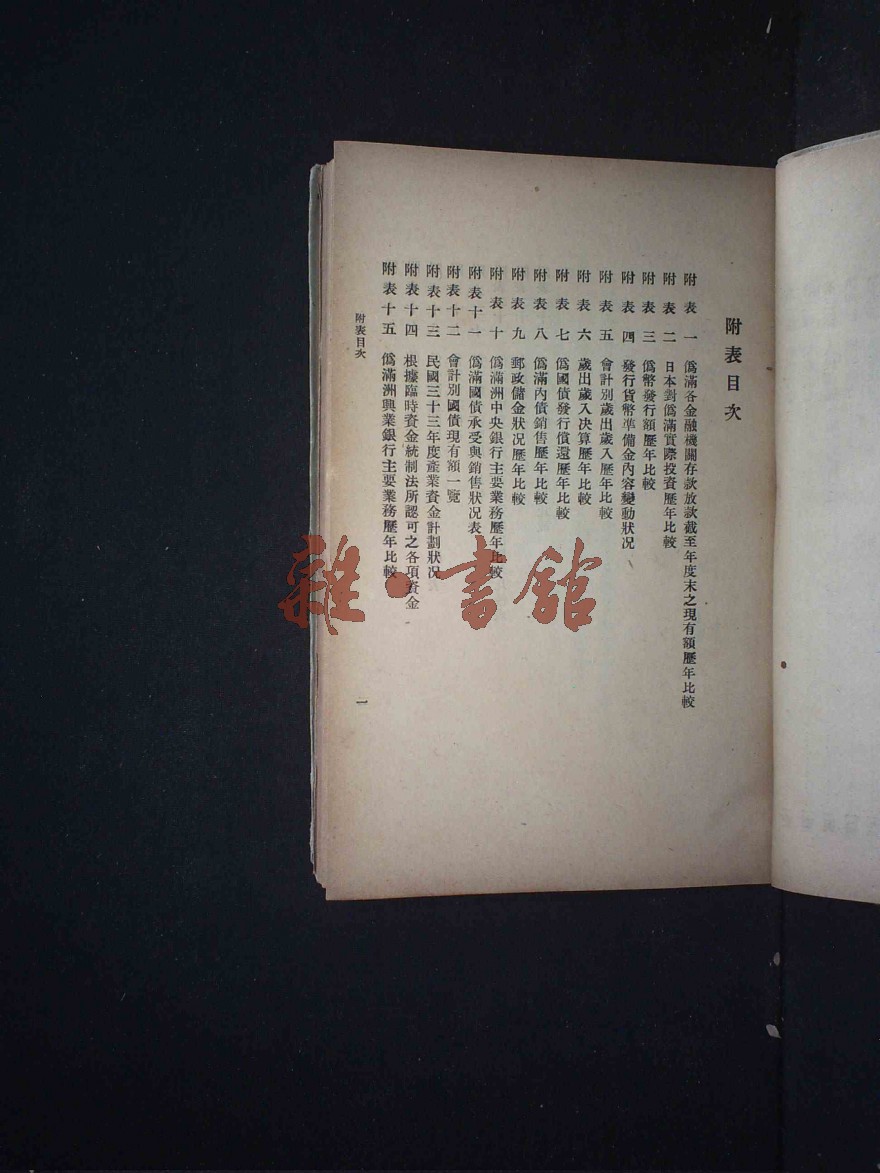 附表目次
附表一 僞滿各金融機關存款放款截至年度末之現有額歷年比較
附表二 日本對僞滿實際投資歷年比較
附表三 僞幣發行額歷年比較
附表四 發行貨幣準備金內容變動狀况
附表五 會計別歲出歲入歷年比較
附表六 歲出歲入決算歷年比較
附表七 僞國債發行償還歷年比較
附表八 僞滿內債銷售歷年比較
附表九 郵政儲金狀况歷年比較
附表十 僞滿洲中央銀行主要業務歷年比較
附表十一 僞滿國債承受與銷售狀况表
附表十二 會計別國債現有額一覽
附表十三 民國三十三年度產業資金計劃狀况
附表十四 根據臨時資金統制法所認可之各項資金
附表十五 僞滿洲興業銀行主要業務歷年比較
附表目次
一
雜·書館